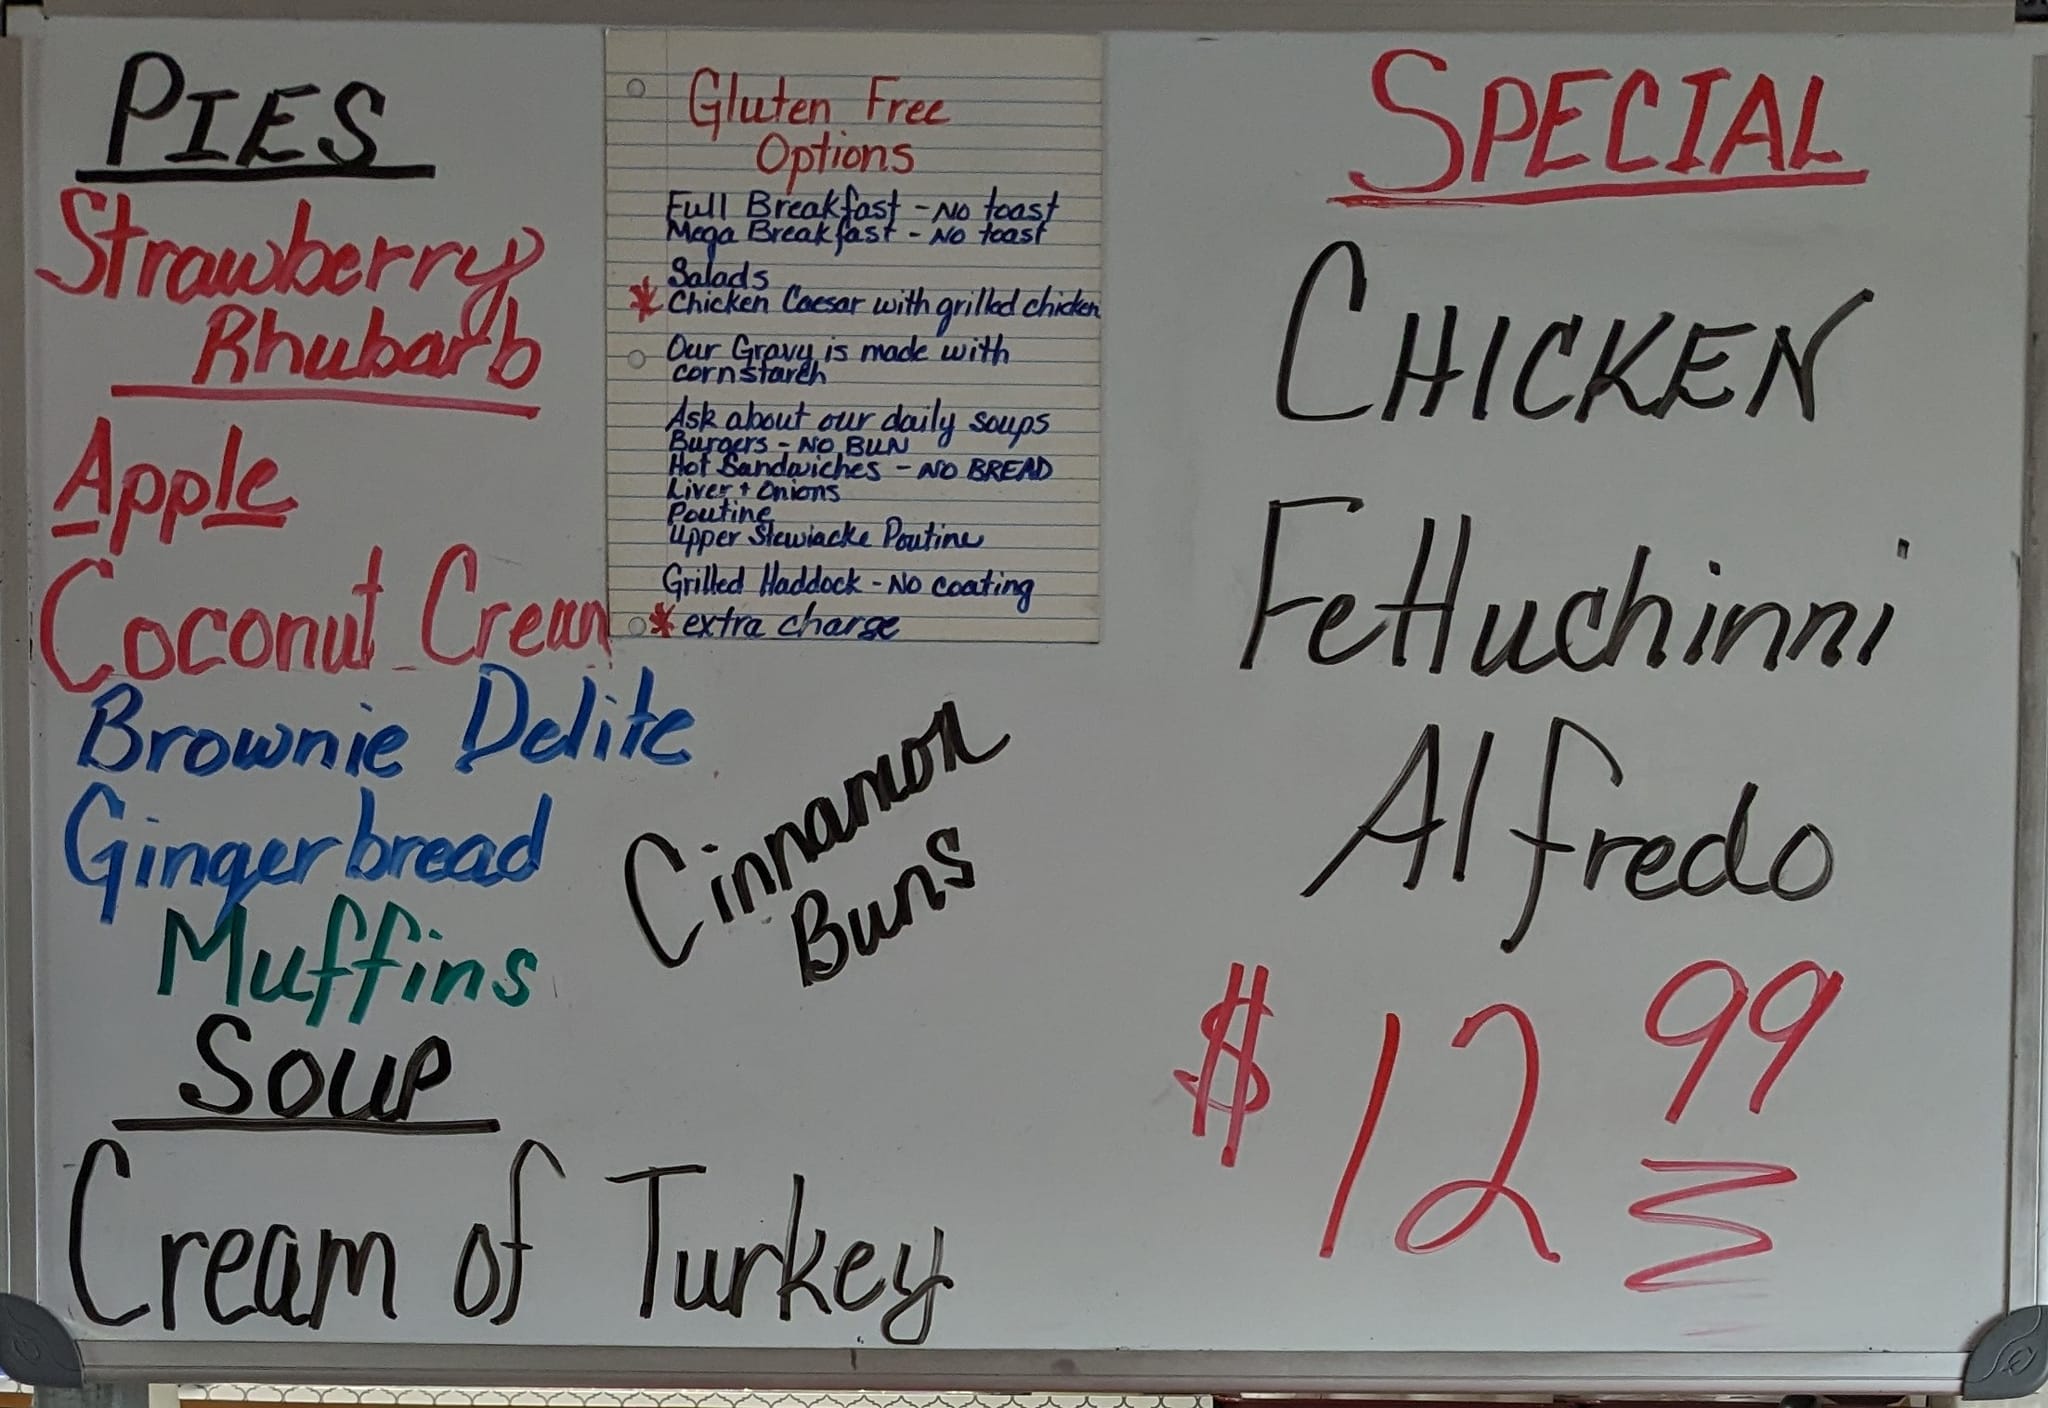 PIES
Strawberry
Rhubarb
Apple
Coconut Cream
Brownie Delite
Gingerbread
Muffins
Cinnamon
Buns
SOUP
Cream of Turkey
Gluten Free
Options
Full Breakfast - No toast
Mega Breakfast - No toast
Salads
* Chicken Caesar with grilled chicken
Our Gravy is made with
cornstarch
Ask about our daily soups
Burgers - NO BUN
Hot Sandwiches - NO BREAD
Liver + Onions
Poutine
Upper Stewiacke Poutine
Grilled Haddock - No coating
* extra charge
SPECIAL
CHICKEN
Fettuchinni
Alfredo
$12 99